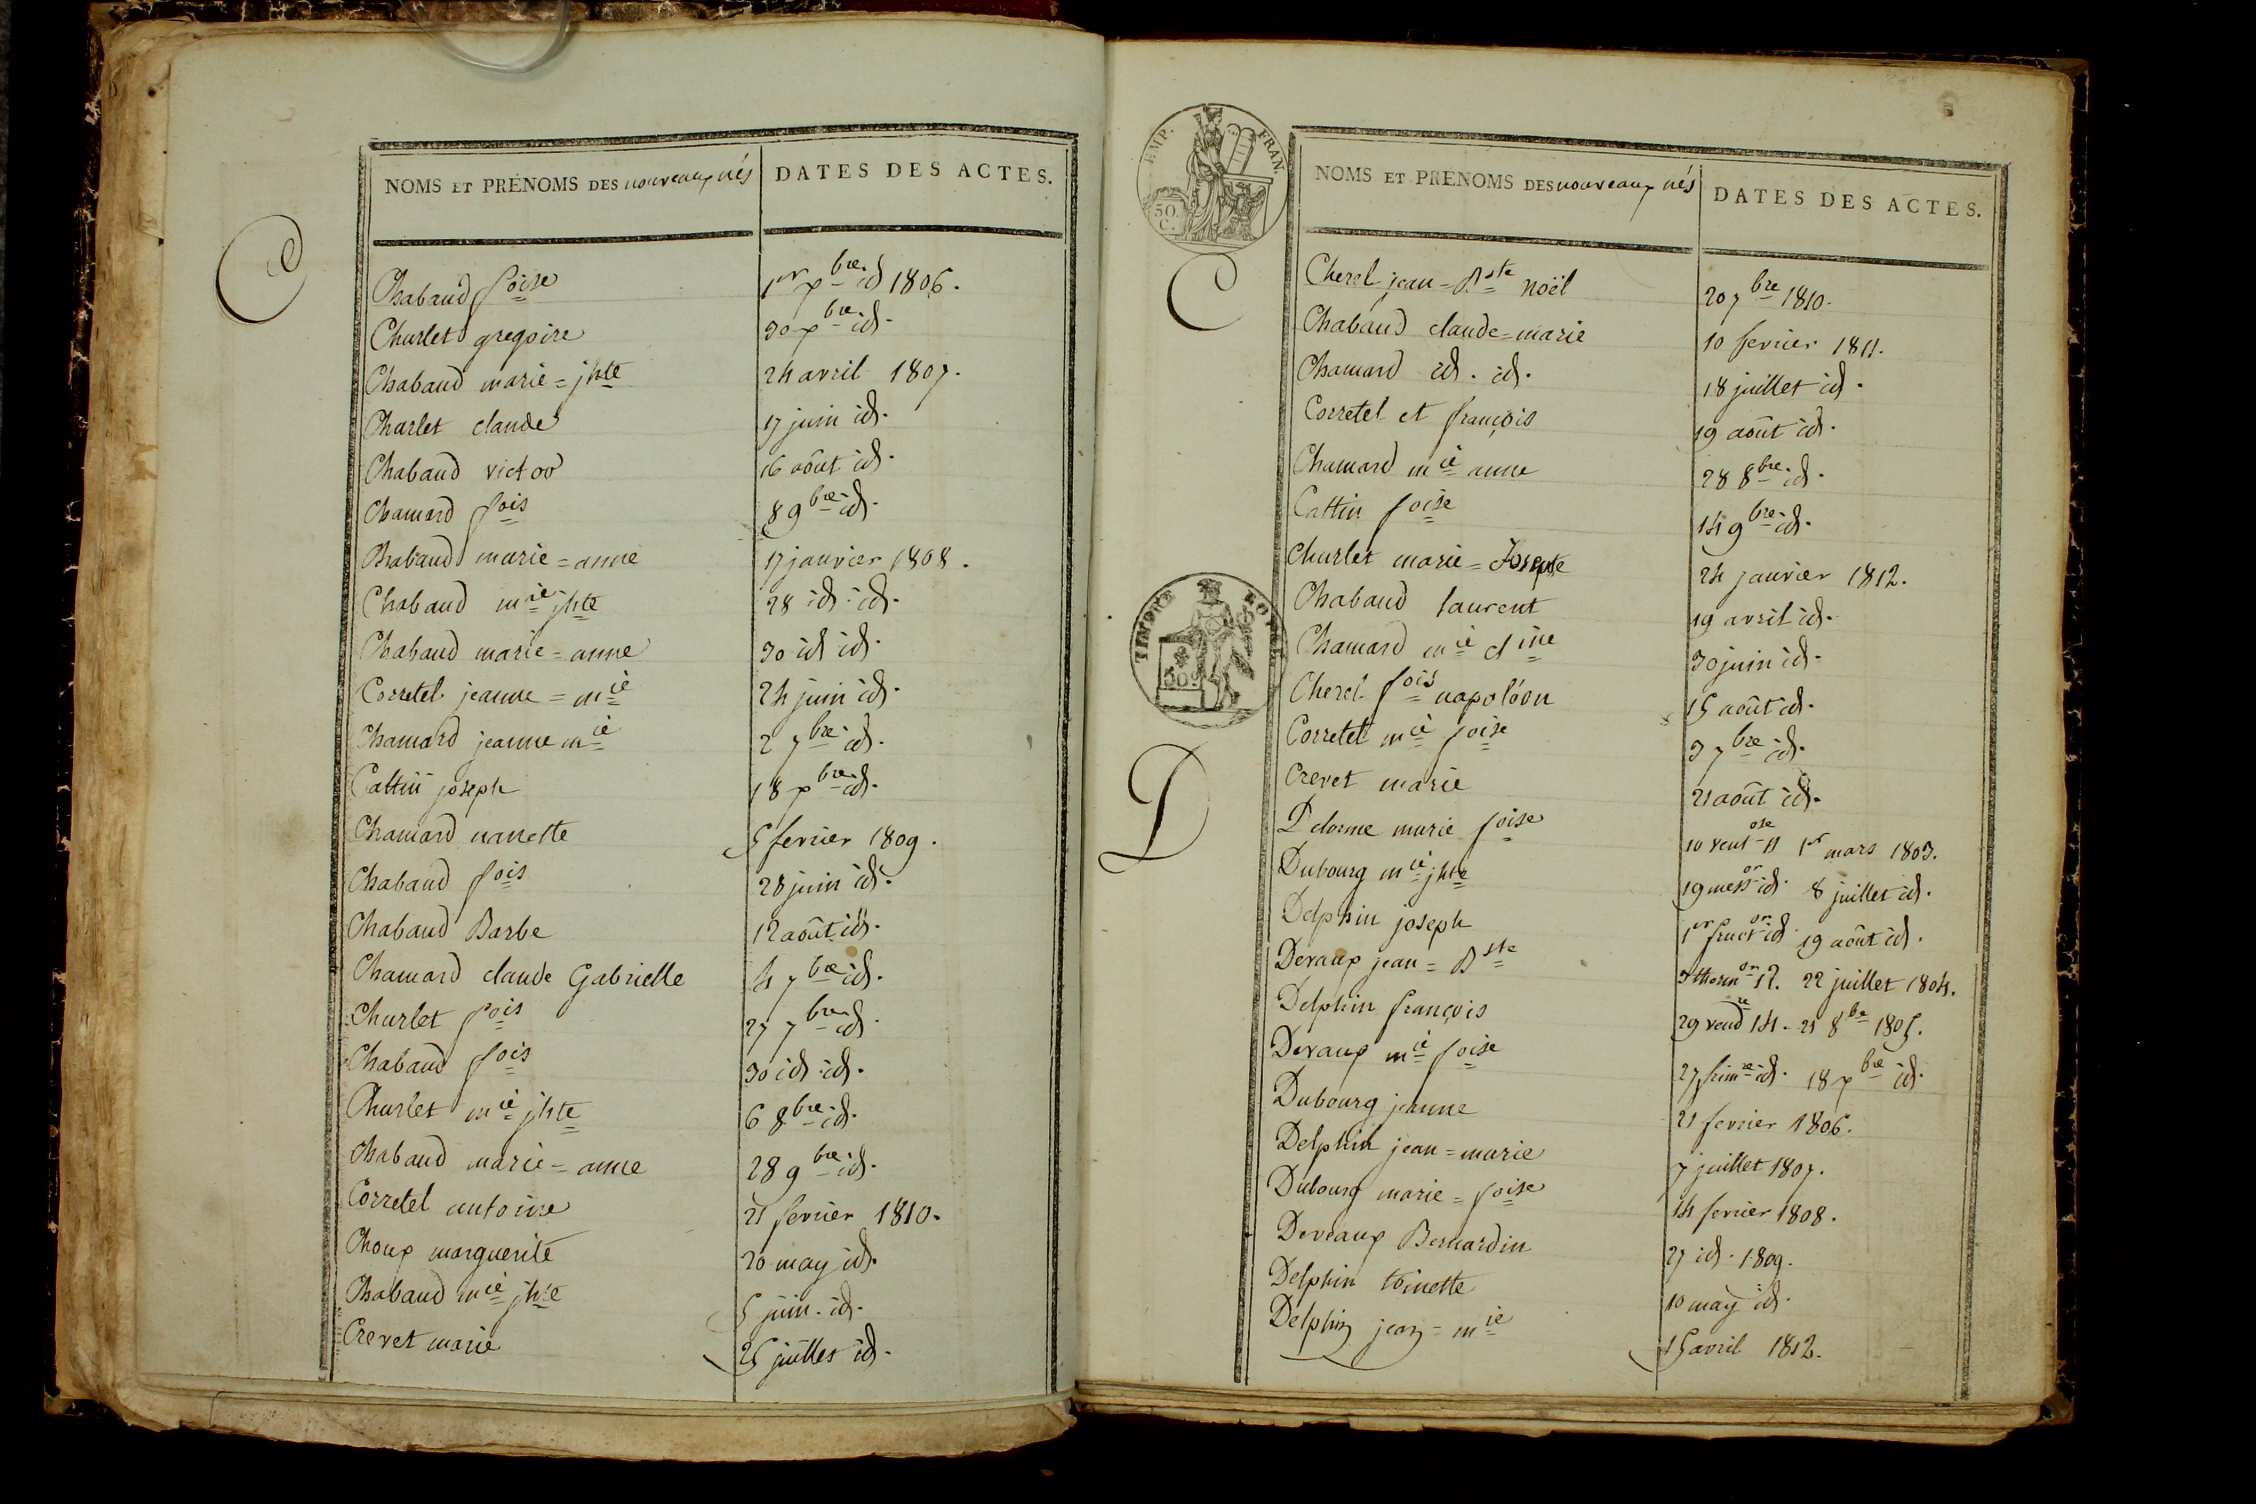 NOMS ET PRÉNOMS DES nouveaux nés DATES DES ACTES.
C
Chabaud foise 1er xbre id 1806.
Charlet gregoire 30 xbre id.
Chabaud marie = jhte 24 avril 1807.
Charlet claude 17 juin id.
Chabaud victor 16 août id.
Chamard fois 8 9bre id.
Chabaud marie = anne 17 janvier 1808.
Chabaud mie jhte 28 id. id.
Chabaud marie = anne 30 id id.
Corretel jeanne = mie 24 juin id.
Chamard jeanne mie 2 7bre id.
Cattin joseph 18 xbre id.
Chamard nanette 5 fevrier 1809.
Chabaud fois 28 juin id.
Chabaud Barbe 12 août id.
Chamard claude Gabrielle 4 7bre id.
Charlet fois 27 7bre id.
Chabaud fois 30 id. id.
Charlet mie jhte 6 8bre id.
Chabaud marie = anne 28 9bre id.
Corretel antoine 21 fevrier 1810.
Choux marguerite 20 may id.
Chabaud mie jhte 5 juin. id.
Crevet marie 25 juillet id.
EMP. FRAN.
50. C.
NOMS ET PRENOMS DES nouveaux nés DATES DES ACTES.
C
Cherel jean = Bste noël 20 7bre 1810.
Chabaud claude = marie 10 fevrier 1811.
Chamard id. id. 18 juillet id.
Corretel et françois 19 août id.
Chamard mie anne 28 8bre id.
Cattin foise 14 9bre id.
Charlet marie = Josephte 24 janvier 1812.
Chabaud laurent 19 avril id.
TIMBRE ROYAL
50c
Chamard mie cline 30 juin id.
Cherel fois napoléon 15 août id.
Corretel mie foise 3 7bre id.
Crevet marie 21 août id.
D
Delorme marie foise 10 ventose 11 1er mars 1803.
Dubourg mie jhte 19 messor id. 8 juillet id.
Delphin joseph 1er fructor id 19 août id.
Devaux jean = Bste 3 thermor 12. 22 juillet 1804.
Delphin françois 29 vendre 14 - 21 8bre 1805.
Devaux mie foise 27 frimre id. 18 xbre id.
Dubourg jeanne 21 fevrier 1806.
Delphin jean = marie 7 juillet 1807.
Dubourg marie = foise 14 fevrier 1808.
Devaux Bernardin 27 id. 1809.
Delphin toinette 10 may id.
Delphin jean = mie 15 avril 1812.